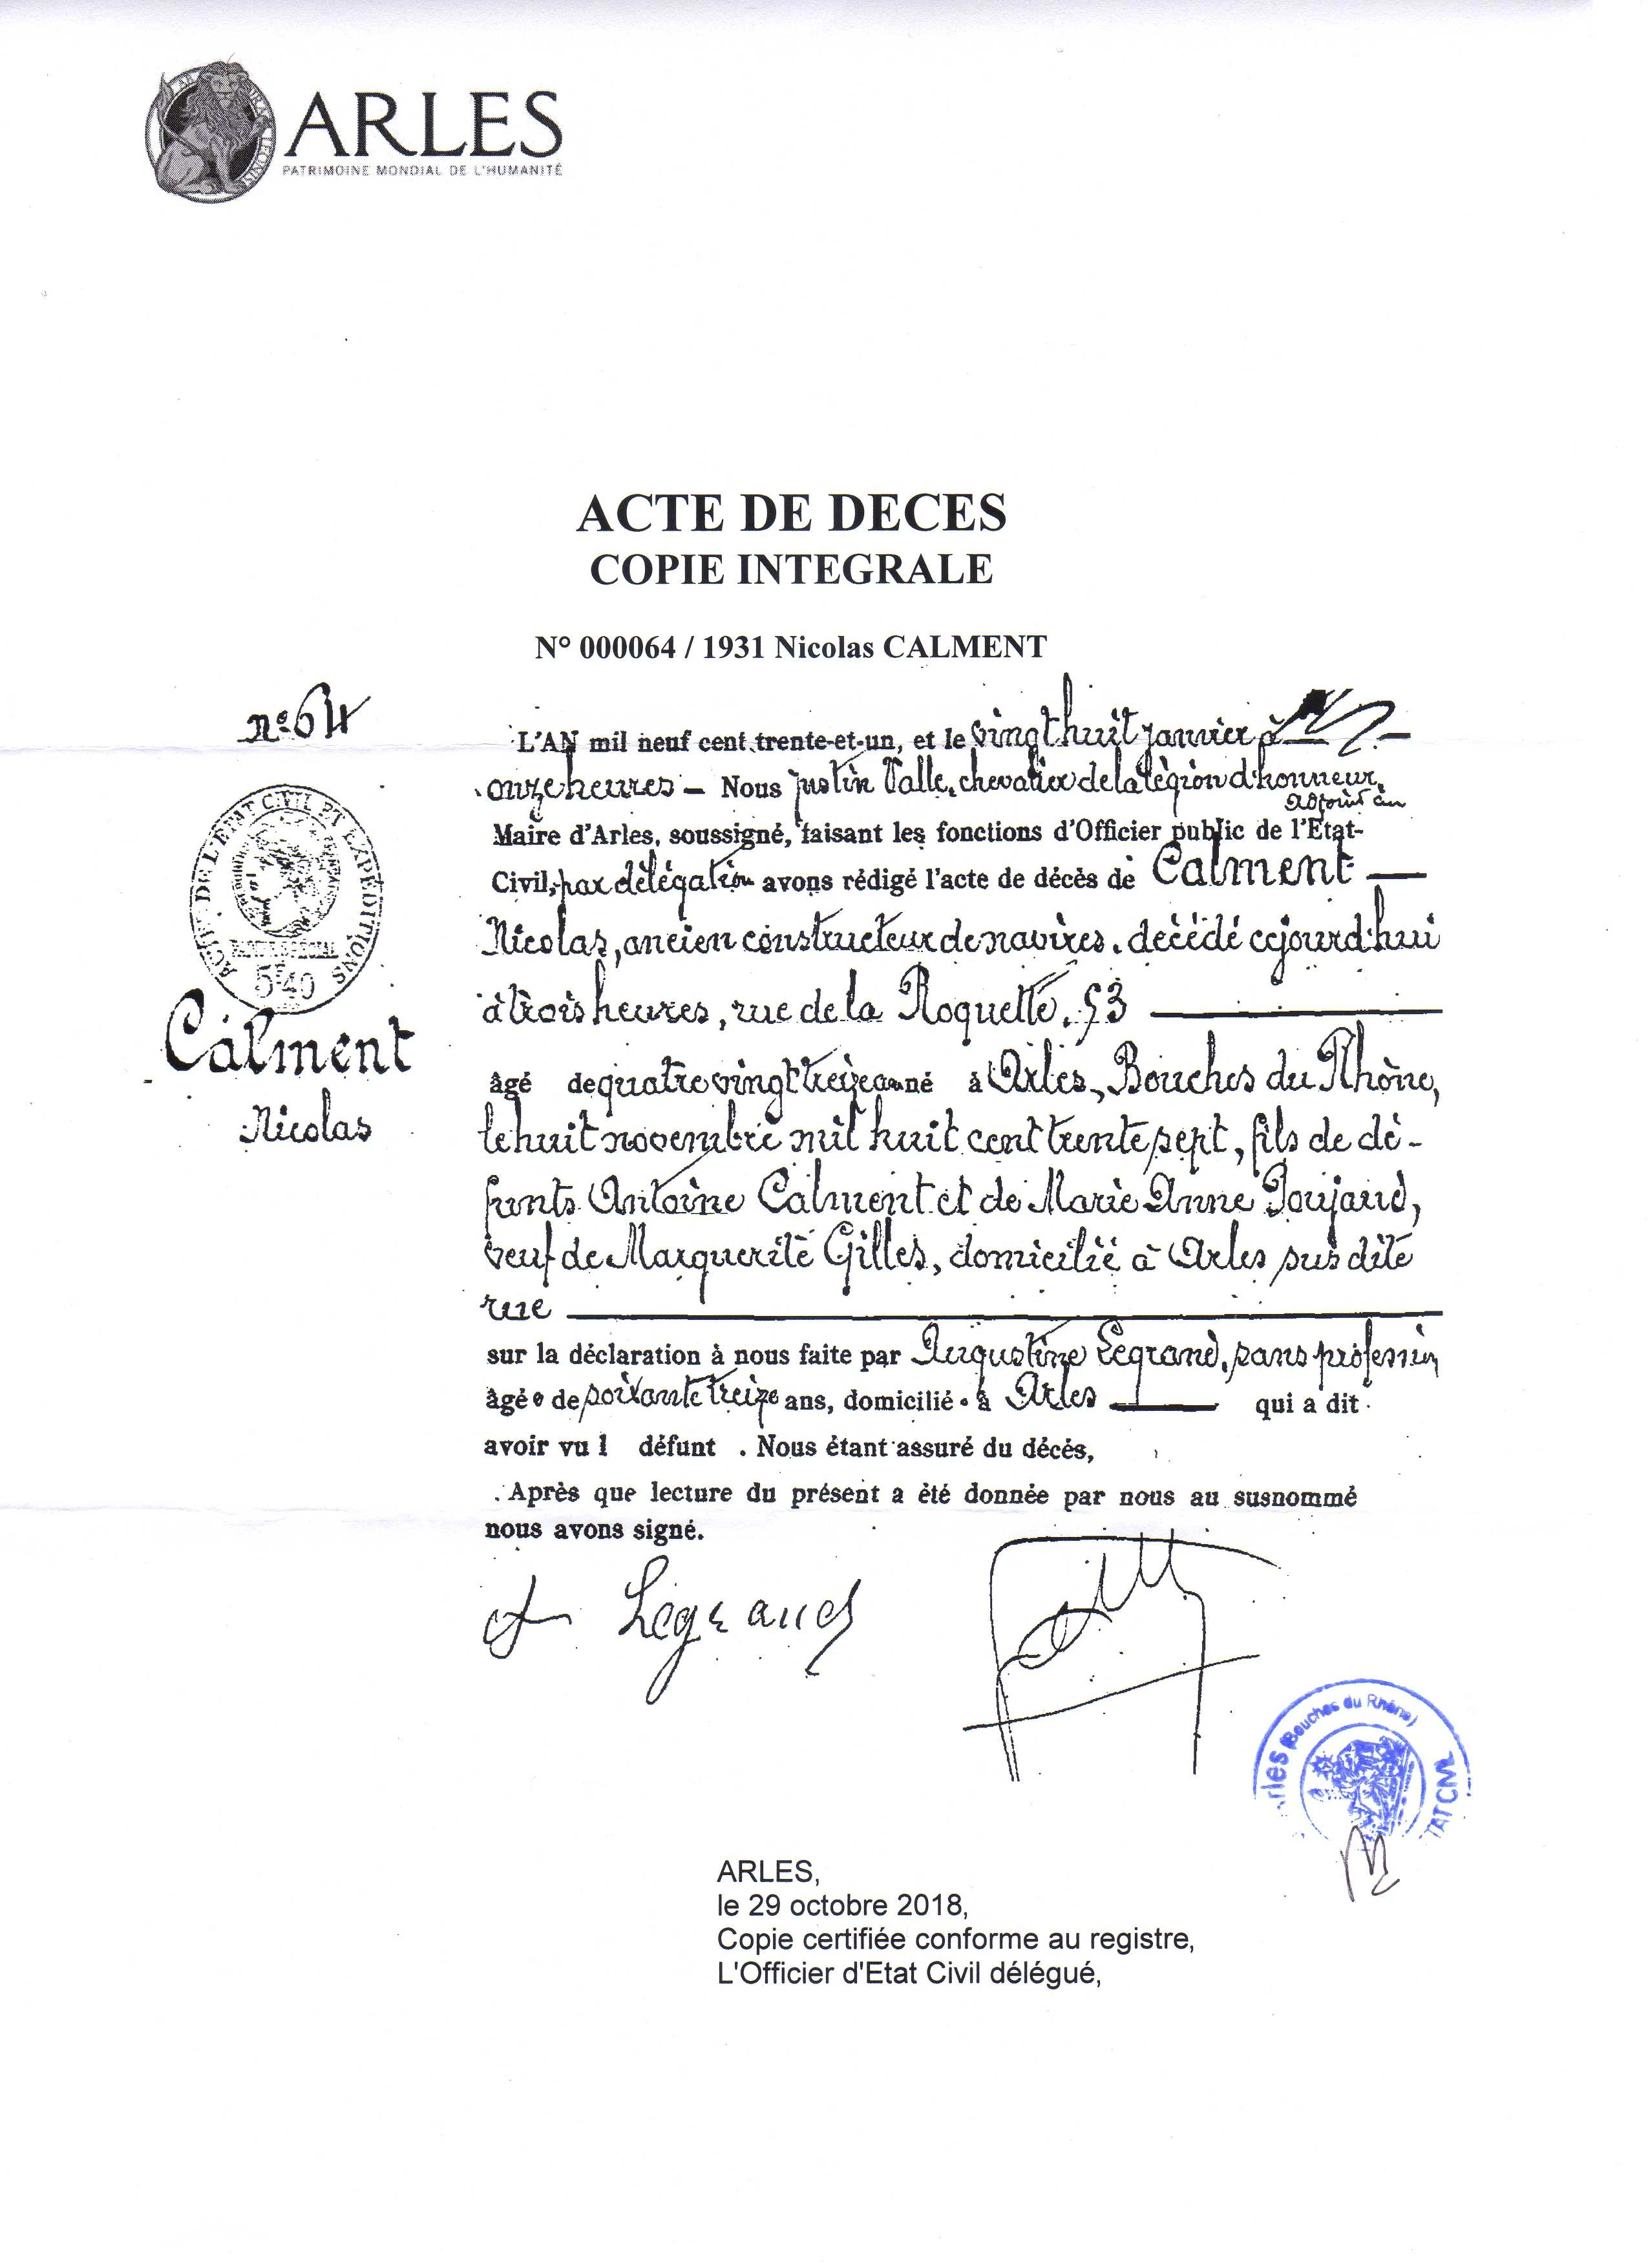 ARLES
PATRIMOINE MONDIAL DE L'HUMANITÉ
ACTE DE DECES
COPIE INTEGRALE
N° 000064 / 1931 Nicolas CALMENT
n° 64
L'AN mil neuf cent trente-et-un, et le vingt huit janvier à
onze heures — Nous Justin Valle, chevalier de la légion d'honneur,
adjoint au
Maire d'Arles, soussigné, faisant les fonctions d'Officier public de l'Etat-
Civil, par délégation avons rédigé l'acte de décès de Calment —
Nicolas, ancien constructeur de navires, décédé cejourd'hui
à trois heures, rue de la Roquette, 53
âgé de quatre vingt treize ans né à Arles, Bouches du Rhône,
le huit novembre mil huit cent trente sept, fils de dé-
funts Antoine Calment et de Marie Anne Poujaud,
veuf de Marguerite Gilles, domicilié à Arles sus dite
rue
sur la déclaration à nous faite par Augustine Legrand, sans profession
âgée de soixante treize ans, domiciliée à Arles — qui a dit
avoir vu l défunt . Nous étant assuré du décés,
Après que lecture du présent a été donnée par nous au susnommé
nous avons signé.
ACTE DE L'ETAT CIVIL ET EXPEDITIONS
5F40
Calment
Nicolas
A Legrand
Arles (Bouches du Rhône)
ETAT CIVIL
ARLES,
le 29 octobre 2018,
Copie certifiée conforme au registre,
L'Officier d'Etat Civil délégué,